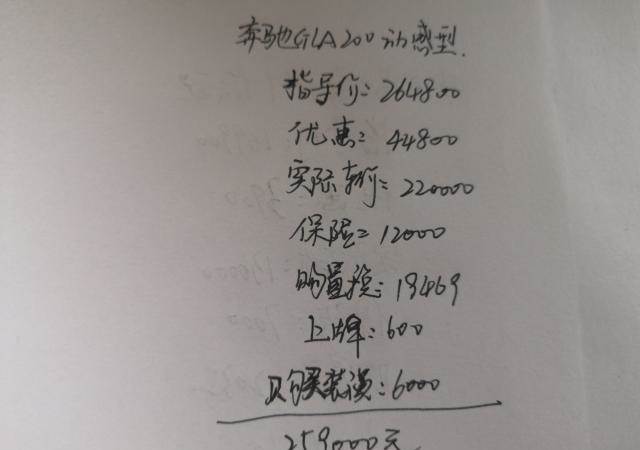 奔驰GLA200动感型.
指导价:264800
优惠:44800
实际车价:220000
保险:12000
购置税:19469
上牌:600
购买装潢:6000
259000元